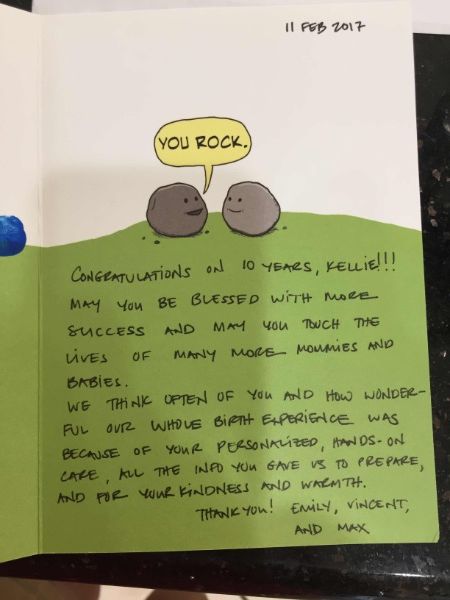 11 FEB 2017
YOU ROCK.
CONGRATULATIONS ON 10 YEARS, KELLIE!!!
MAY YOU BE BLESSED WITH MORE
SUCCESS AND MAY YOU TOUCH THE
LIVES OF MANY MORE MOMMIES AND
BABIES.
WE THINK OFTEN OF YOU AND HOW WONDER-
FUL OUR WHOLE BIRTH EXPERIENCE WAS
BECAUSE OF YOUR PERSONALIZED, HANDS-ON
CARE, ALL THE INFO YOU GAVE US TO PREPARE,
AND FOR YOUR KINDNESS AND WARMTH.
THANK YOU! EMILY, VINCENT,
AND MAX